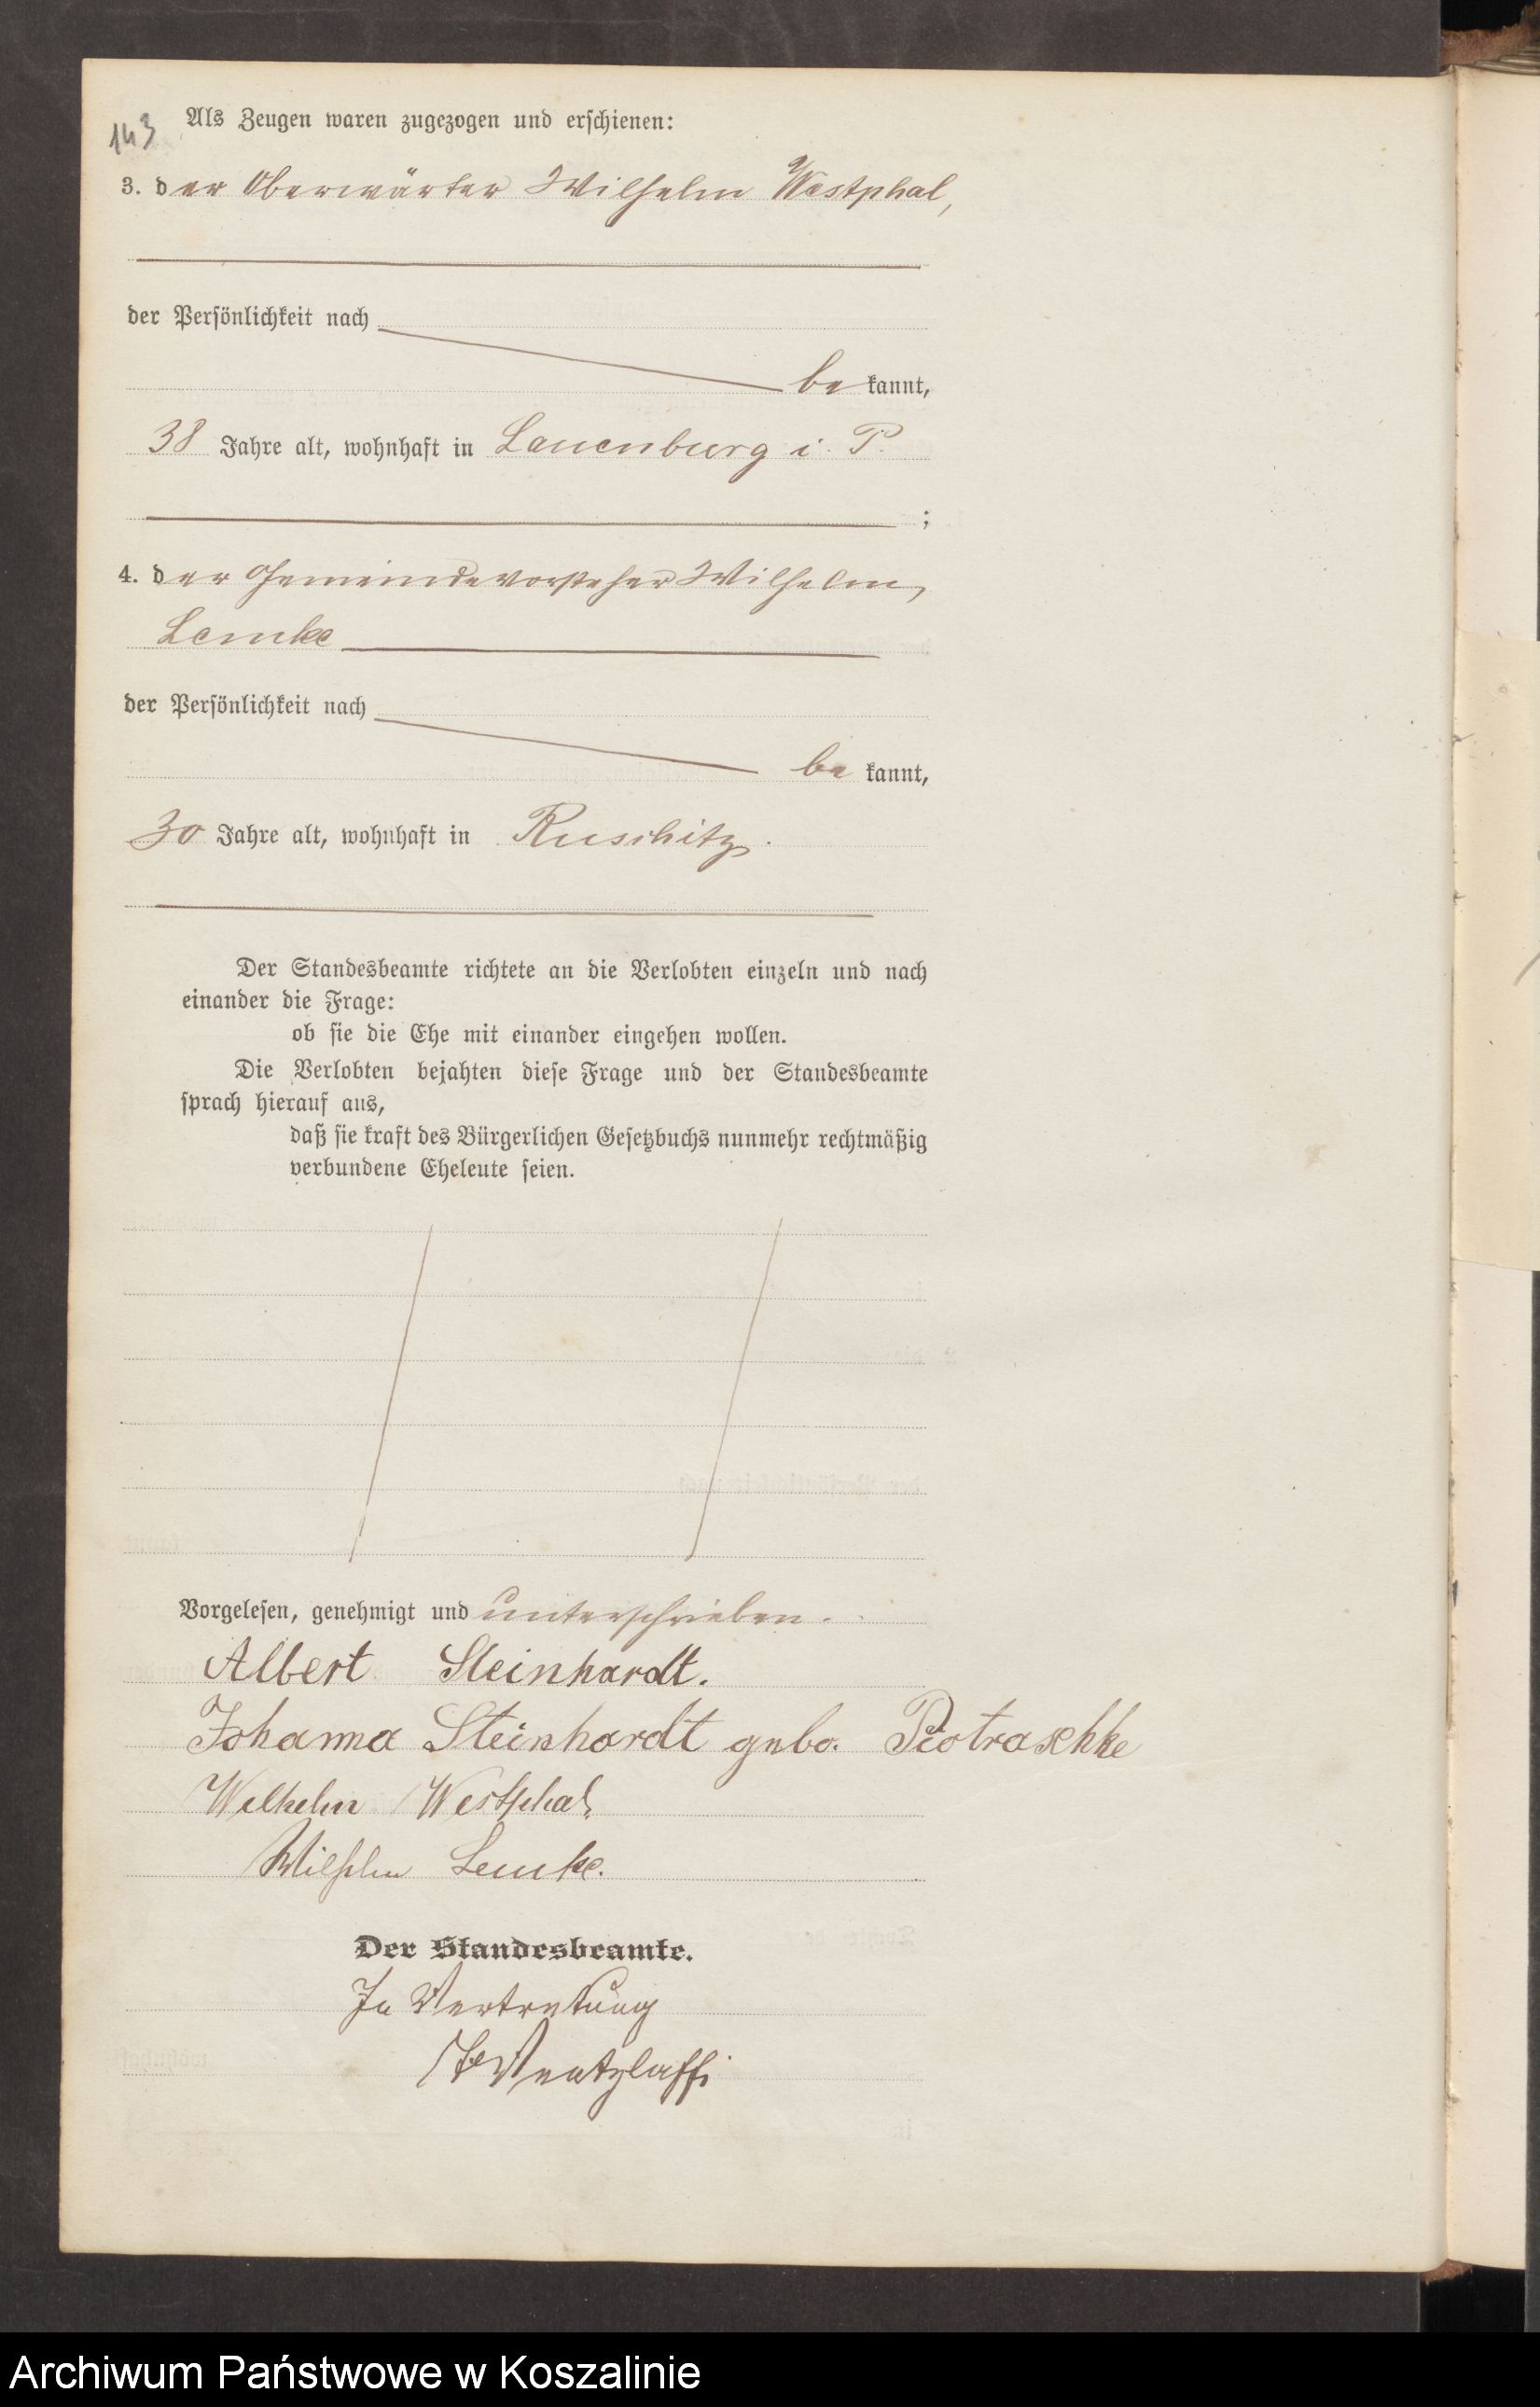 143
Als Zeugen waren zugezogen und erschienen:
3. der Oberwärter Wilhelm Westphal,
der Persönlichkeit nach
be kannt,
38 Jahre alt, wohnhaft in Lauenburg i. P.
;
4. der Gemeindevorsteher Wilhelm
Lemke
der Persönlichkeit nach
be kannt,
30 Jahre alt, wohnhaft in Ruschitz.
Der Standesbeamte richtete an die Verlobten einzeln und nach
einander die Frage:
ob sie die Ehe mit einander eingehen wollen.
Die Verlobten bejahten diese Frage und der Standesbeamte
sprach hierauf aus,
daß sie kraft des Bürgerlichen Gesetzbuchs nunmehr rechtmäßig
verbundene Eheleute seien.
Vorgelesen, genehmigt und unterschrieben.
Albert Steinhardt.
Johanna Steinhardt gebo. Piotraschke
Wilhelm Westphal
Wilhelm Lemke.
Der Standesbeamte.
In Vertretung
Wentzlaff
Archiwum Państwowe w Koszalinie